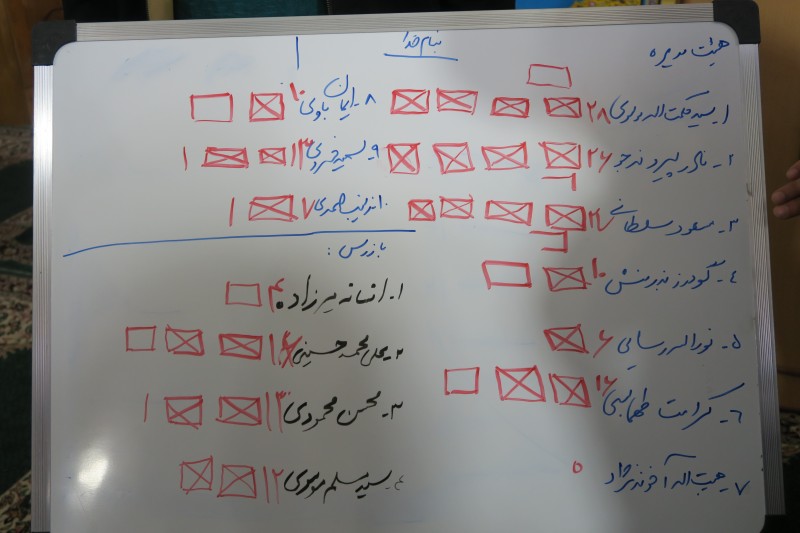 بنام خدا
هیات مدیره
۱- سید حکمت اله موسوی ۲۸
۲- نادر پیرو نذرجو ۲۶
۳- مسعود سلطانی ۲۷
۴- گودرز نذرمنش ۱۰
۵- نوراله رسایی ۶
۶- کرامت طهماسبی ۱۶
۷- هیبت اله آخوندنژاد ۵
۸- ایمان باوی ۱۰
۹- سعید خسروی ۱۳
۱۰- اندیب احمدی ۷
بازرس:
۱- افسانه میرزاده ۴
۲- علی محمد حسینی ۱۴
۳- محسن محمودی ۱۳
۴- سید مسلم موسوی ۱۲